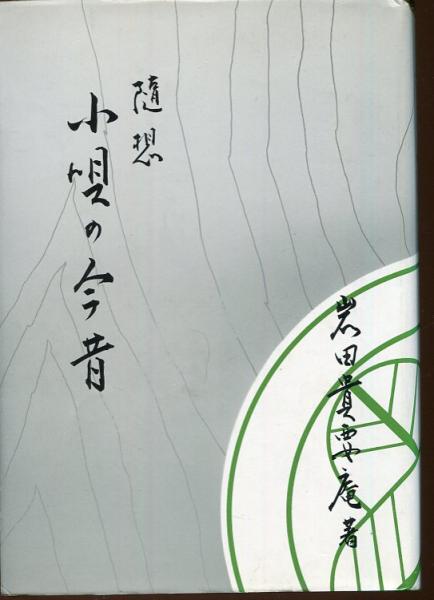 随想
小唄の今昔
岩田貴要庵著